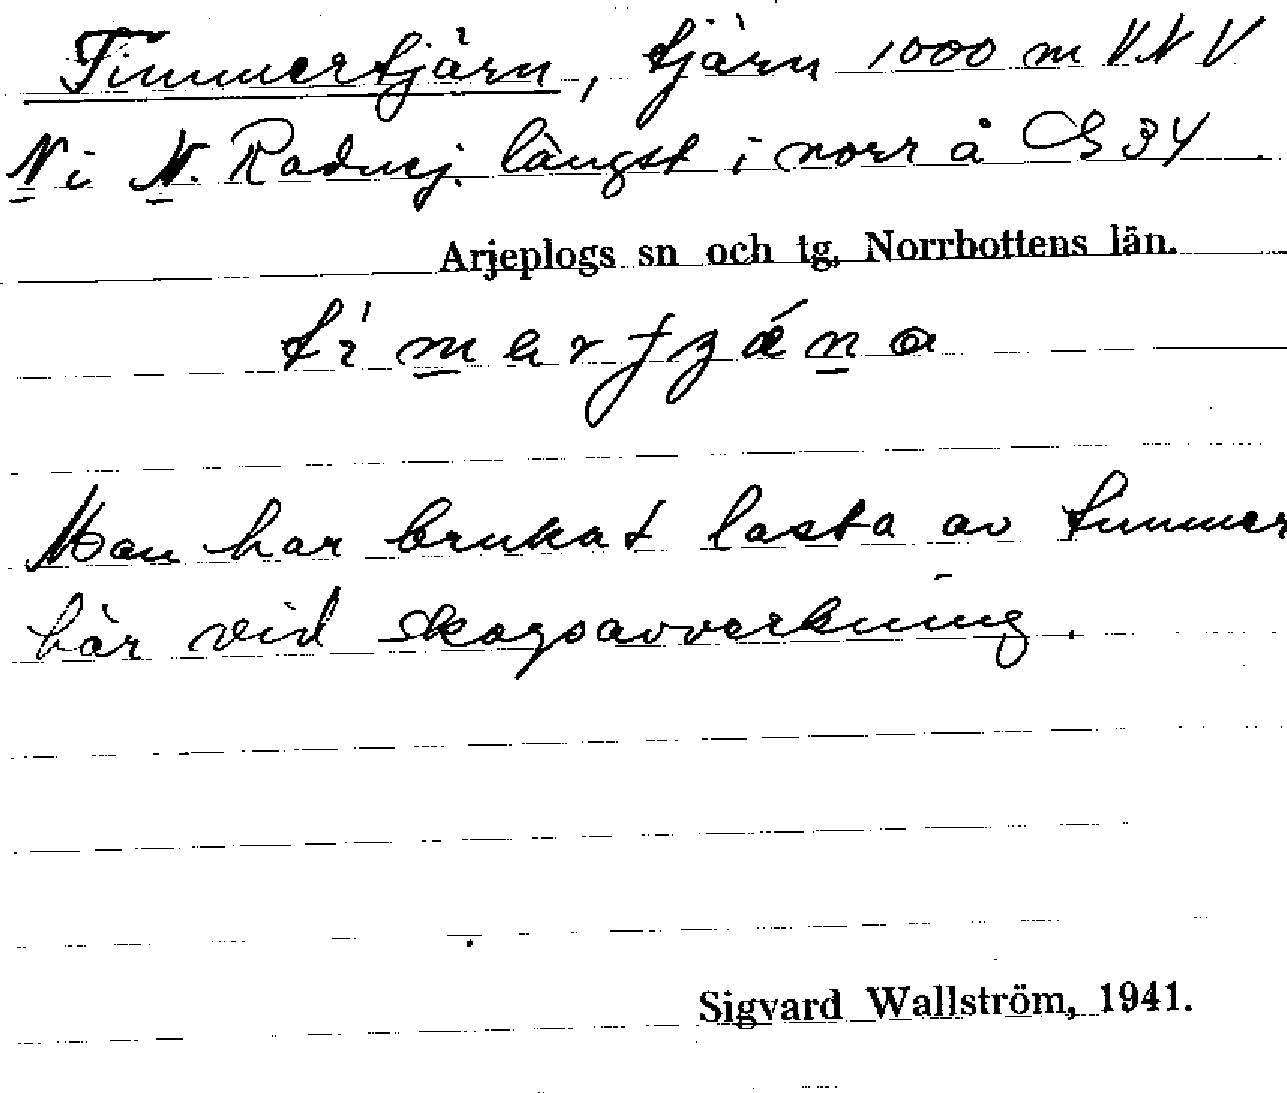 Timmertjärn, tjärn 1000 m VNV
N i N. Radnej. längst i norr å GS 34
Arjeplogs sn och tg, Norrbottens län.
Man har brukat lasta av timmer
här vid skogsavverkning.
Sigvard Wallström, 1941.